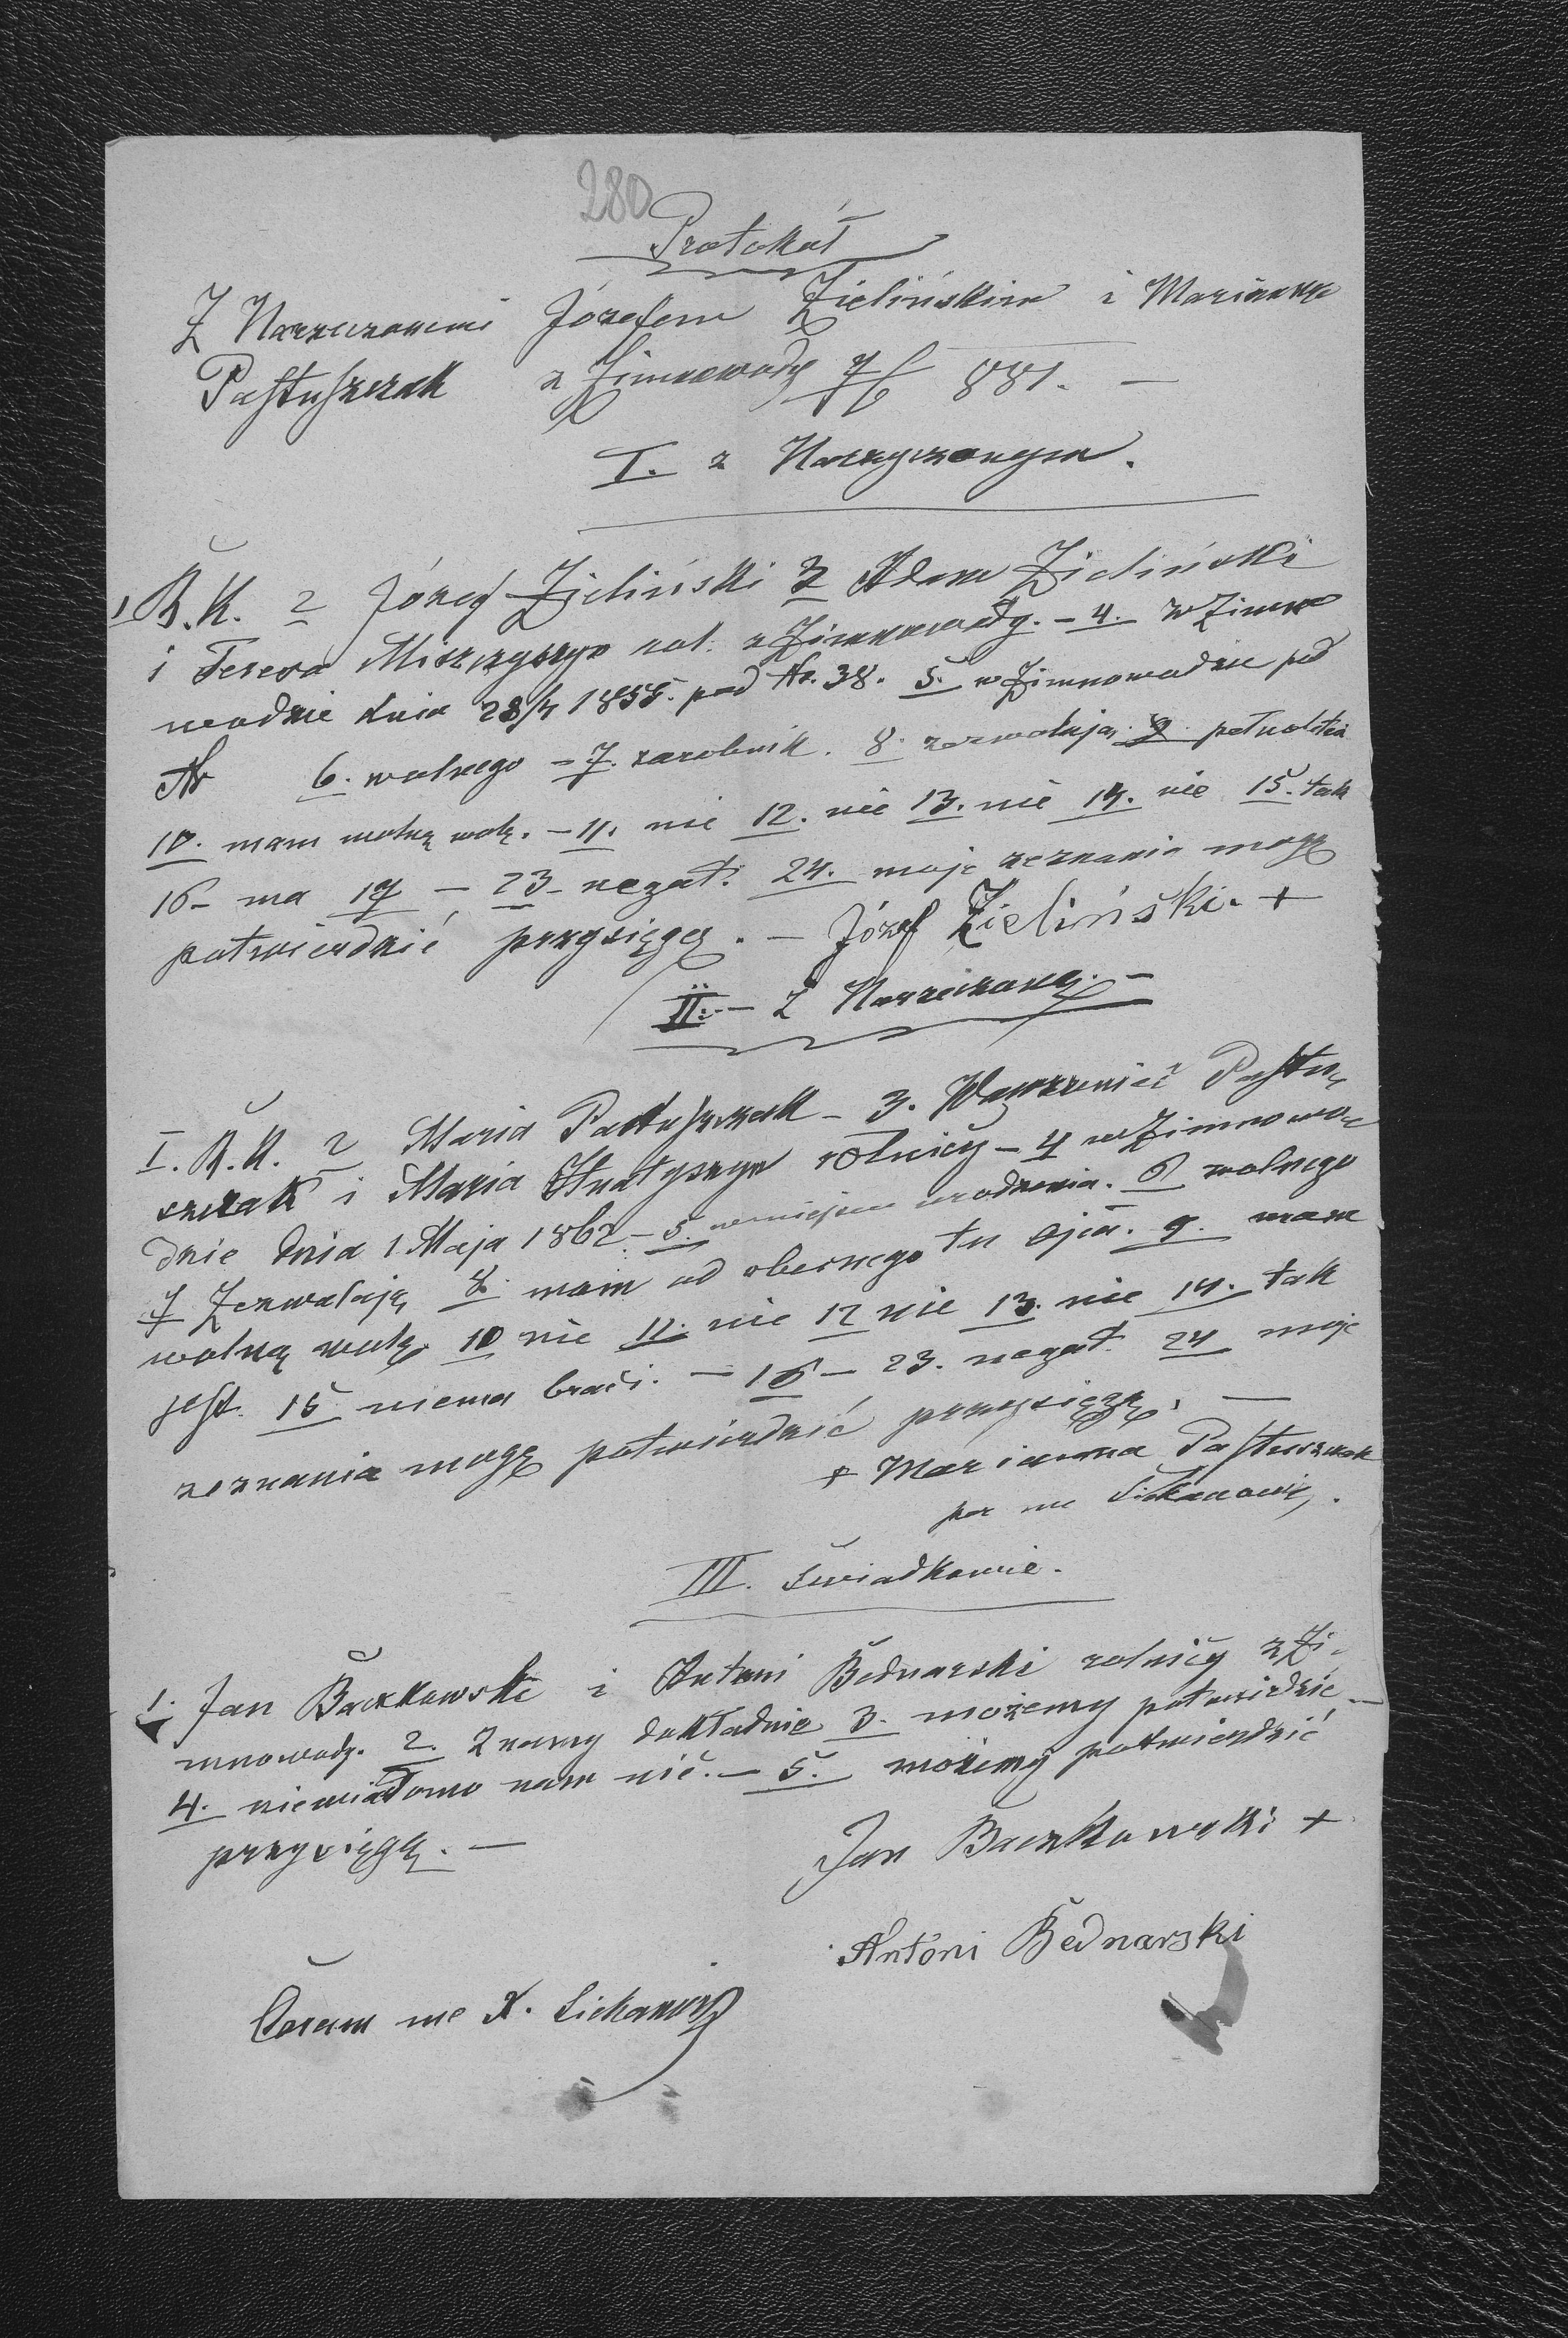 280
Protokół
Z Narzeczonemi Józefem Zielińskim i Marianną
Pastuszczak z Zimnewody 7/6 881. —
I. z Narzyczonym.
1 R.K. 2 Józef Zieliński 3 Adam Zieliński
i Teresa rol. z Zimnewody. - 4. w Zimno
wodzie dnia 28/4 1855. pod Nr. 38. 5. w Zimnowodzie pod
Nr 6. wolnego - 7. zarobnik. 8. zezwalają. 9. pełnoletni
10. mam wolną wolę. - 11. nie 12. nie 13. nie 14. nie 15. tak
16 - ma 17 - 23 - negat. 24. moje zeznania mogę
potwierdzić przysięgą. - Józef Zieliński. +
II. - Z Narzeczoną. -
I. R.K. 2 Maria Pastuszczak - 3. Wawrzeniec Pastu
szczak i Maria rolnicy - 4 w Zimnowo-
dzie dnia 1 Maja 1862 - 5. w miejscu urodzenia. 6 wolnego
7 Zezwalają 8. mam od obecnego tu ojca. 9. mam
wolną wolę. 10 nie 11. nie 12 nie 13. nie 14. tak
jest. 15 niema braci. - 16 - 23. negat. 24 moje
zeznania mogę potwierdzić przysięgą. —
+ Marianna Pastuszczak
per me
III. Świadkowie.
1. Jan Baczkowski i Antoni Bednarski rolnicy z Zi-
mnowody. 2. Znamy dokładnie 3. możemy potwierdzić -
4. niewiadomo nam nic. - 5. możemy potwierdzić
przysięgą. —
Jan Baczkowski +
Antoni Bednarski
Coram me X.